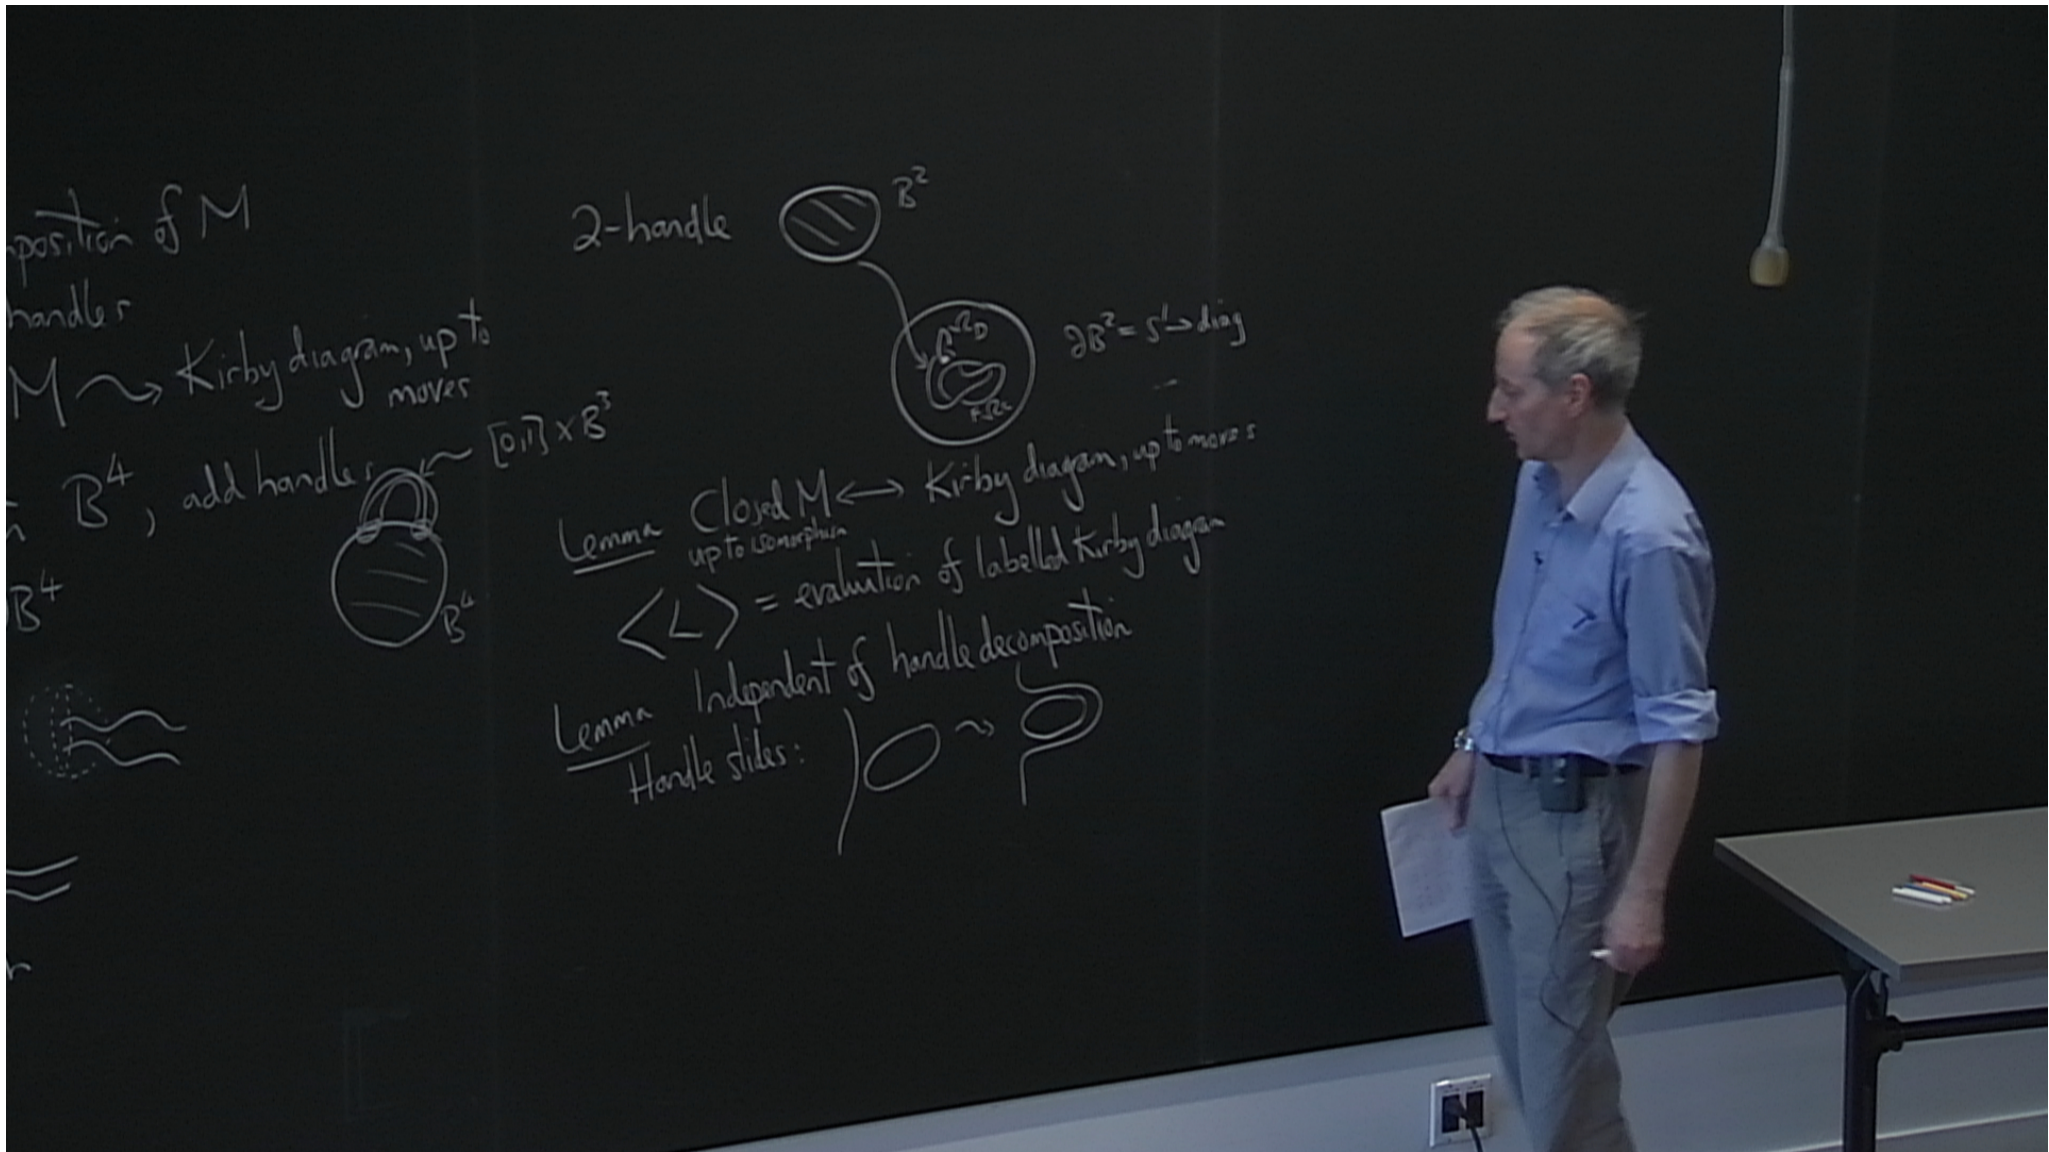 position of M
handles
M ⇝ Kirby diagram, up to
moves
B⁴, add handles
[0,1] × B³
B⁴
B⁴
2-handle
B²
∂B² = S¹ → diag
Lemma Closed M ↔ Kirby diagram, up to moves
up to isomorphism
<L> = evaluation of labelled Kirby diagram
Lemma Independent of handle decomposition
Handle slides: